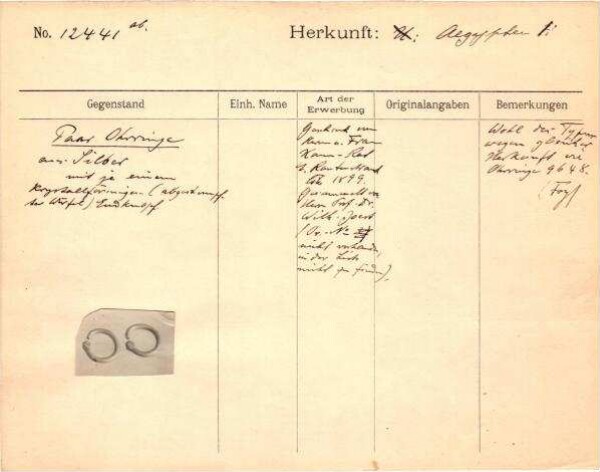 No. 12441 ab.
Herkunft: Aegypten
Gegenstand
Einh. Name
Art der Erwerbung
Originalangaben
Bemerkungen
Paar Ohrringe
aus Silber
mit je einem
krystallförmigen (abgestumpf-
ter Würfel) Endknopf
Geschenk von
Herrn u. Frau
Rautenstrauch
Cöln 1899.
Gesammelt von
dem Prof. Dr.
Wilh. Joest
(Or.-No
nicht vorhanden,
in der Liste
nicht zu finden).
Wohl der Typus
wegen gleicher
Herkunft wie
Ohrringe 9648.
(Foy)